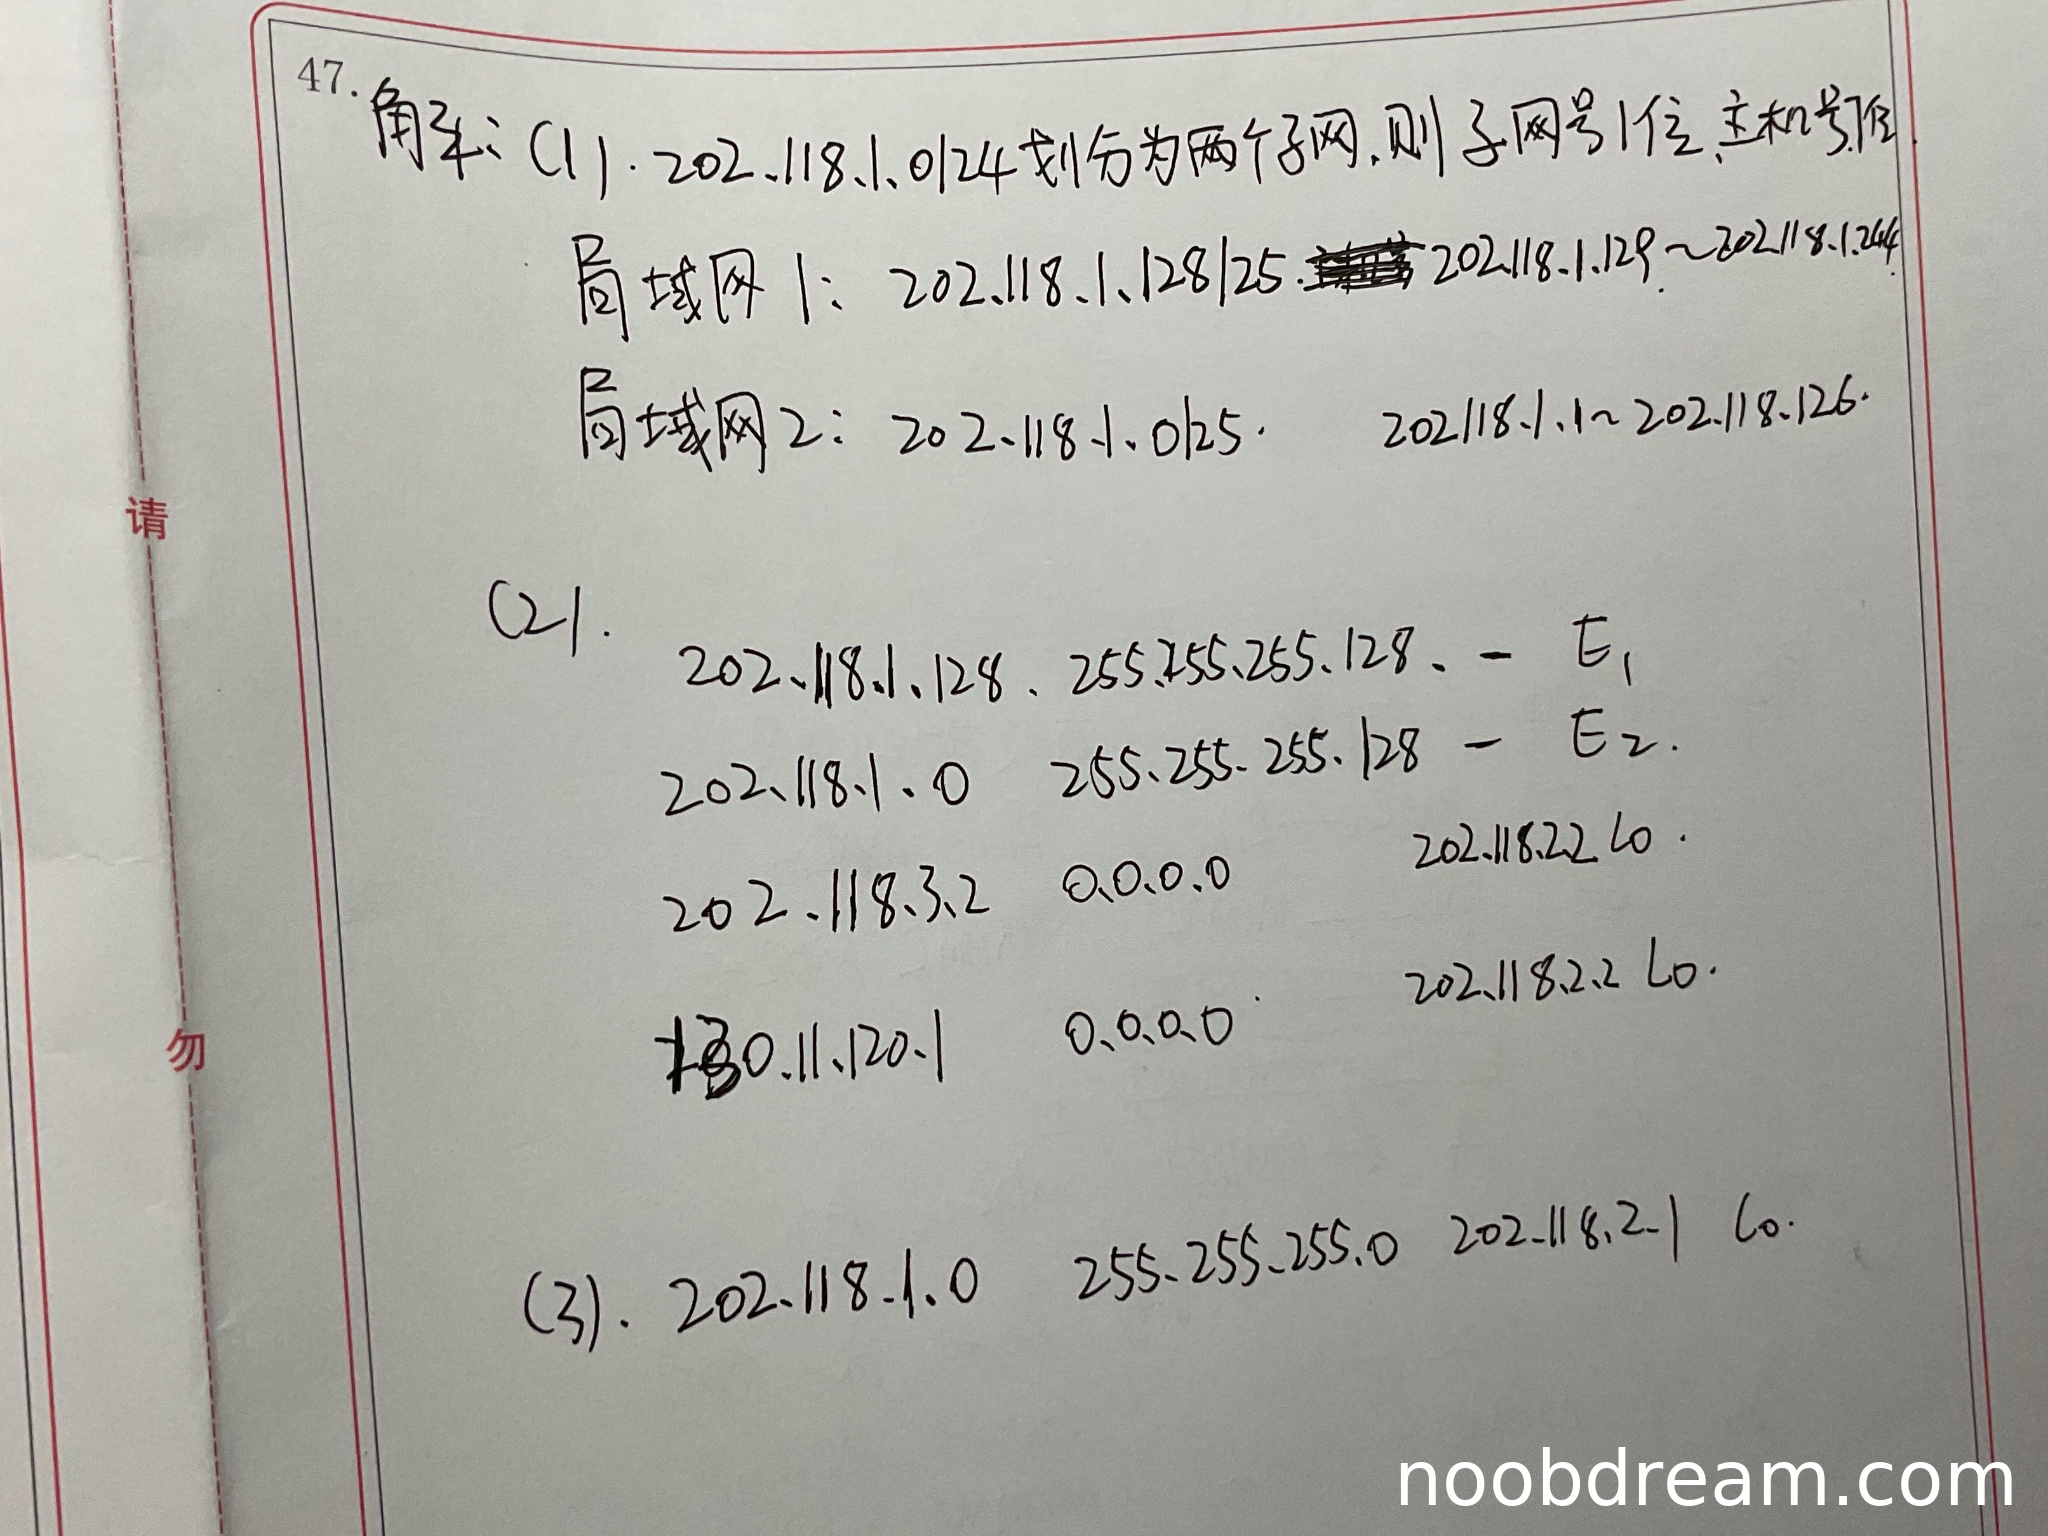 47. 解：(1). 202.118.1.0/24划分为两个子网,则子网号1位、主机号7位.
局域网1： 202.118.1.128/25. 202.118.1.129~202.118.1.244.
局域网2： 202.118.1.0/25. 202118.1.1~202.118.126.
请
(2).
202.118.1.128. 255.255.255.128. — E1
202.118.1.0 255.255.255.128 — E2.
202.118.3.2 0.0.0.0 202.118.2.2 L0.
130.11.120.1 0.0.0.0 202.118.2.2 L0.
勿
(3). 202.118.1.0 255.255.255.0 202.118.2.1 L0.
noobdream.com